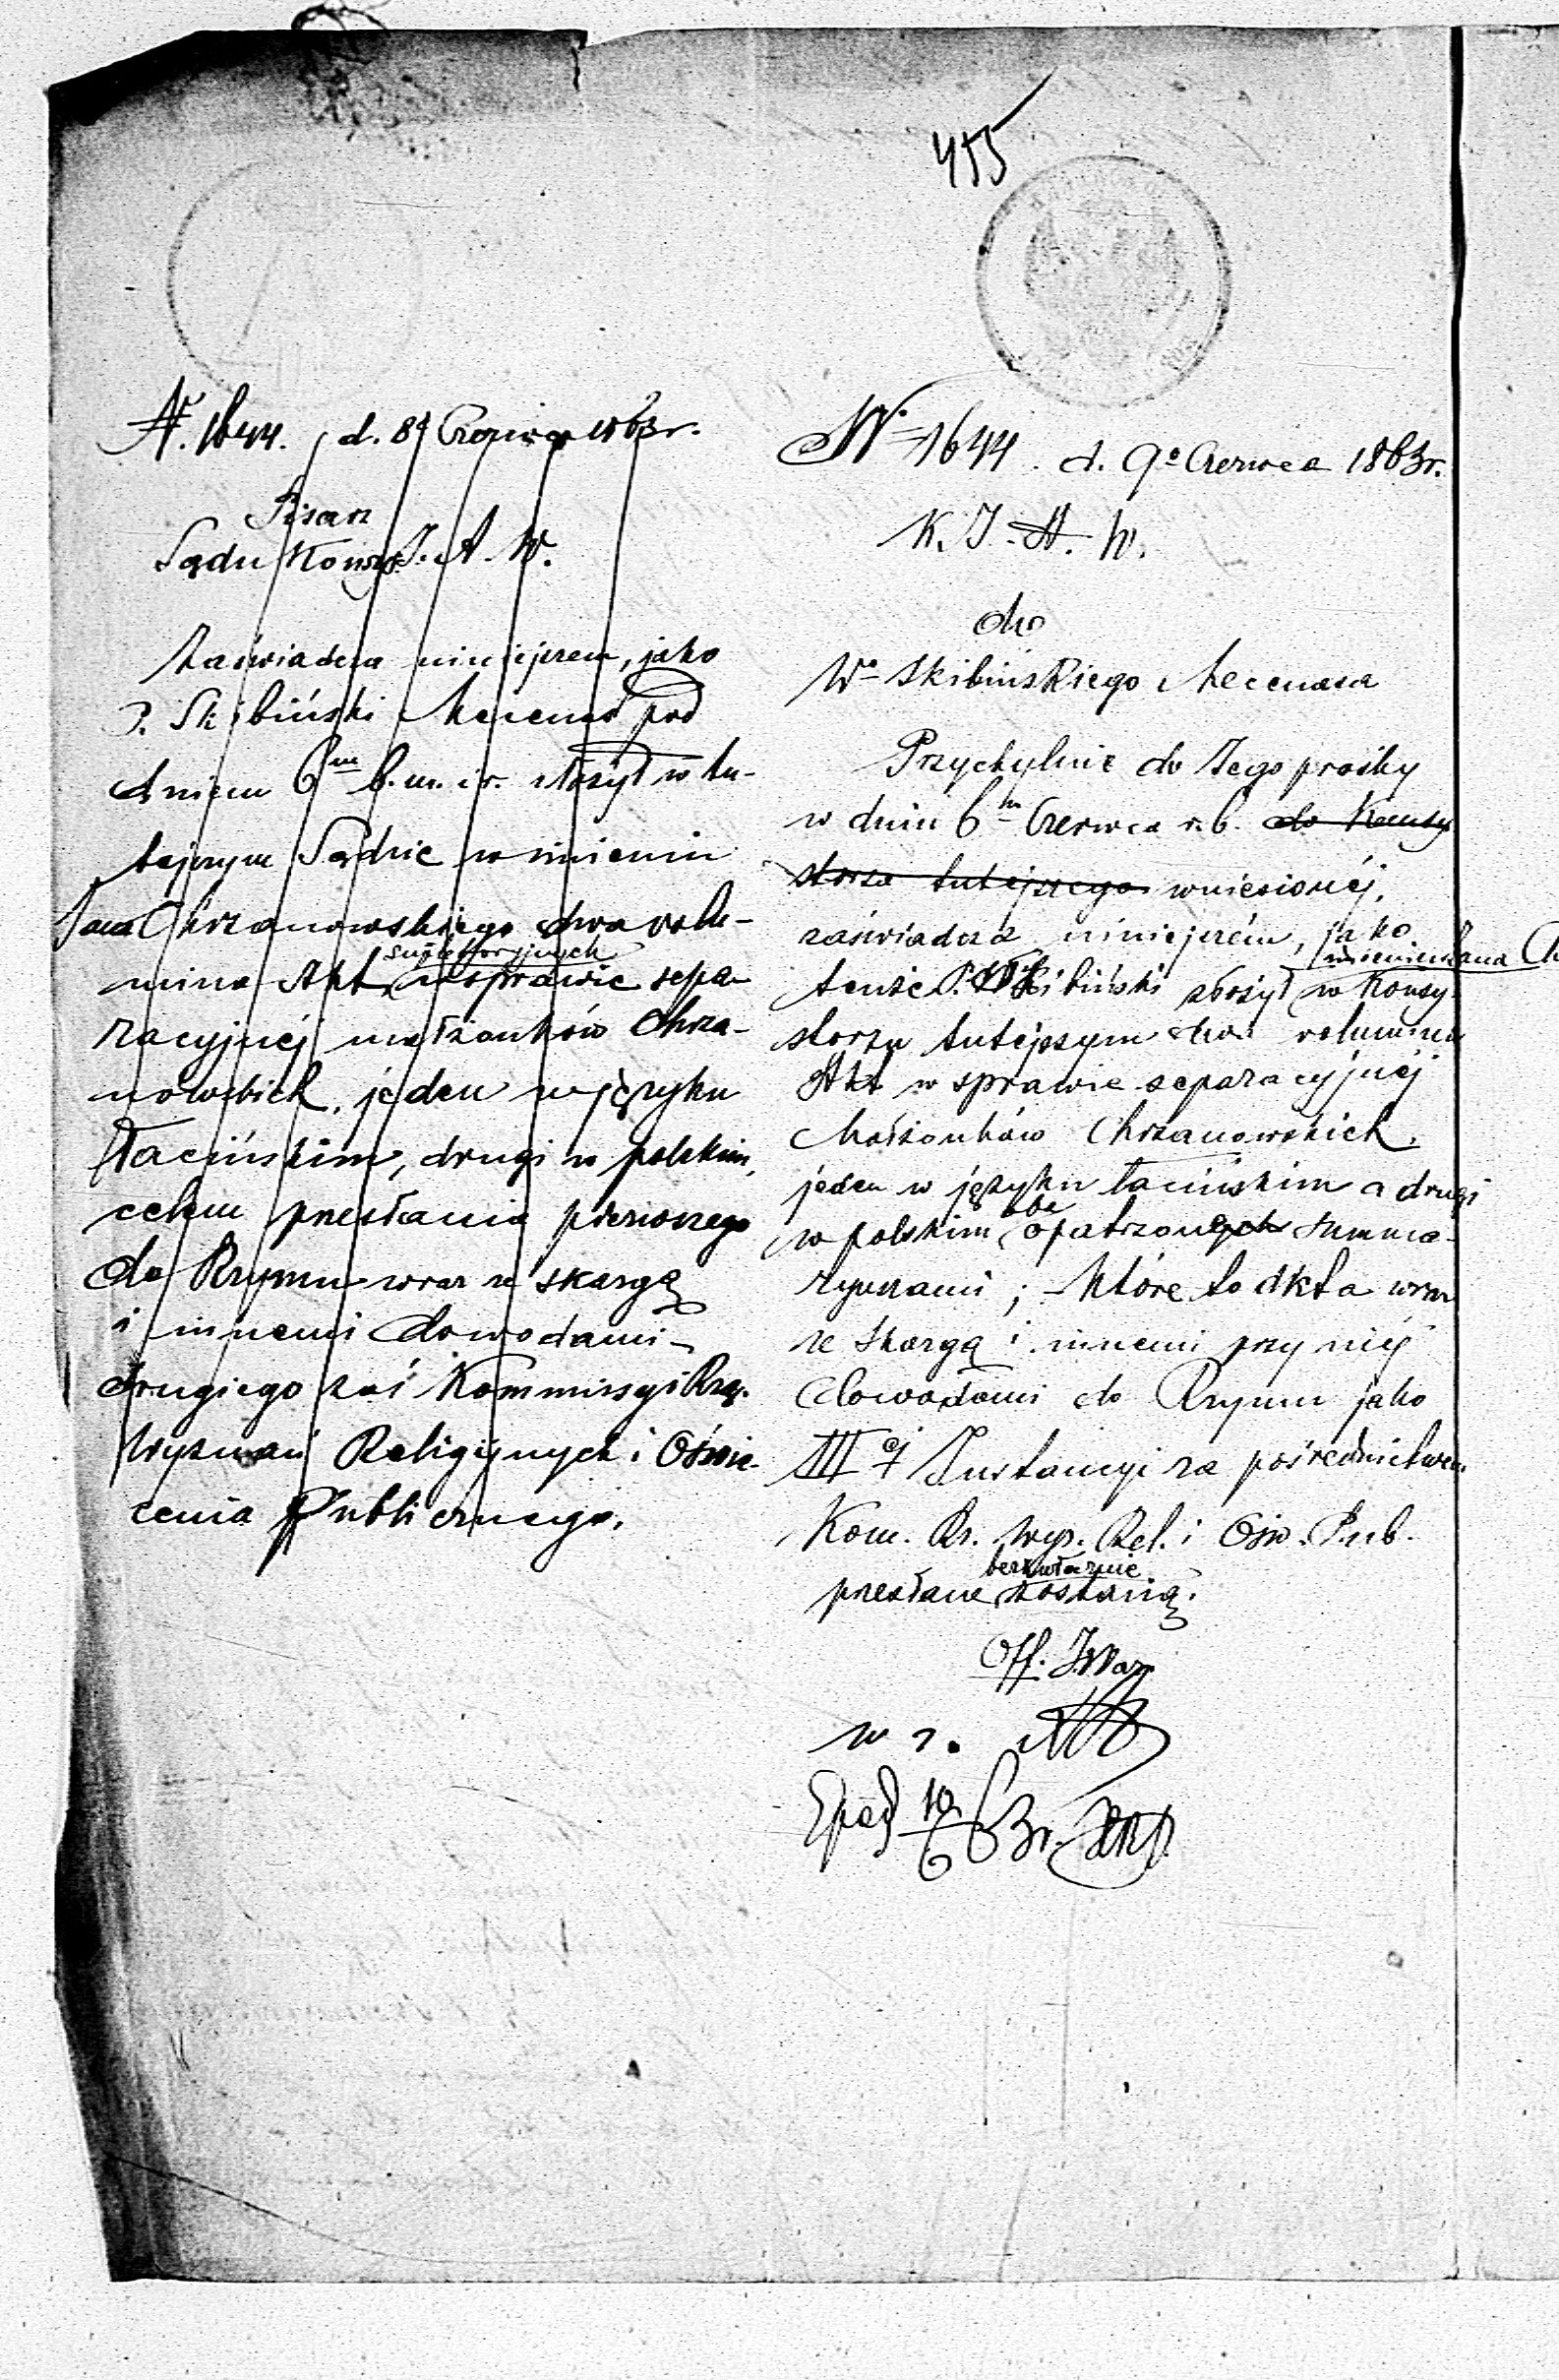 455
N. 1644. d. 8º Czerwca 1863r.
Pisarz
Sądu Konsys. J. A. W.
Zaświadcza niniejszem, jako
P. Skibiński Mecenas pod
dniem 6m b.m. i r. złożył w tu-
tejszym Sądzie w imieniu
Jana Chrzanowskiego dwa volu-
mina Akt w sprawie sepa-
racyjnéj małżonków Chrza-
nowskich, jeden w języku
łacińskim, drugi w polskim,
celem przesłania pierwszego
do Rzymu wraz ze skargą
i innemi dowodami
drugiego zaś Kommissyi Rzą.
Wyznań Religijnych i Oświe-
cenia Publicznego.
Nº 1644. d. 9º Czerwca 1863r.
K. J. A. W.
do
Wº Skibińskiego Mecenasa
Przychylnie do Jego prośby
w dniu 6m Czerwca r.b. do Konsy
storza tutejszego wniesionéj,
zaświadcza niniejszém, jako
w imieniu Jana Ch
tenże P. Skibiński złożył w Konsy-
storzu tutejszym dwa volumina
Akt w sprawie separacyjnéj
Małżonków Chrzanowskich,
jeden w języku łacińskim a drugi
obe
w polskim opatrzonych summa-
ryuszami; które to Akta wraz
ze skargą i innemi przy niéj
dowodami do Rzymu jako
IIIéj Instancyi za pośrednictwem
Kom. Rz. Wyz. Rel. i Ośw. Pub.
bezzwłocznie
przesłane zostaną.
Off. J. War.
w z.
Exped 10/6 63r.